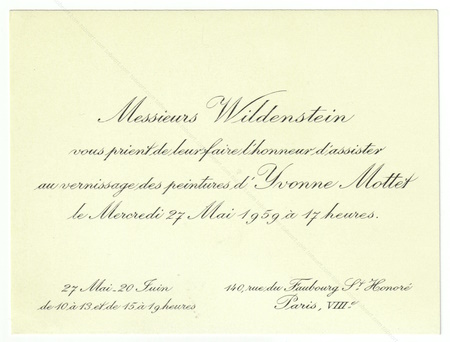 Messieurs Wildenstein
vous prient de leur faire l'honneur d'assister
au vernissage des peintures d'Yvonne Mottet
le Mercredi 27 Mai 1959 à 17 heures.
27 Mai - 20 Juin
de 10 à 13 et de 15 à 19 heures
140, rue du Faubourg St Honoré
Paris, VIIIe